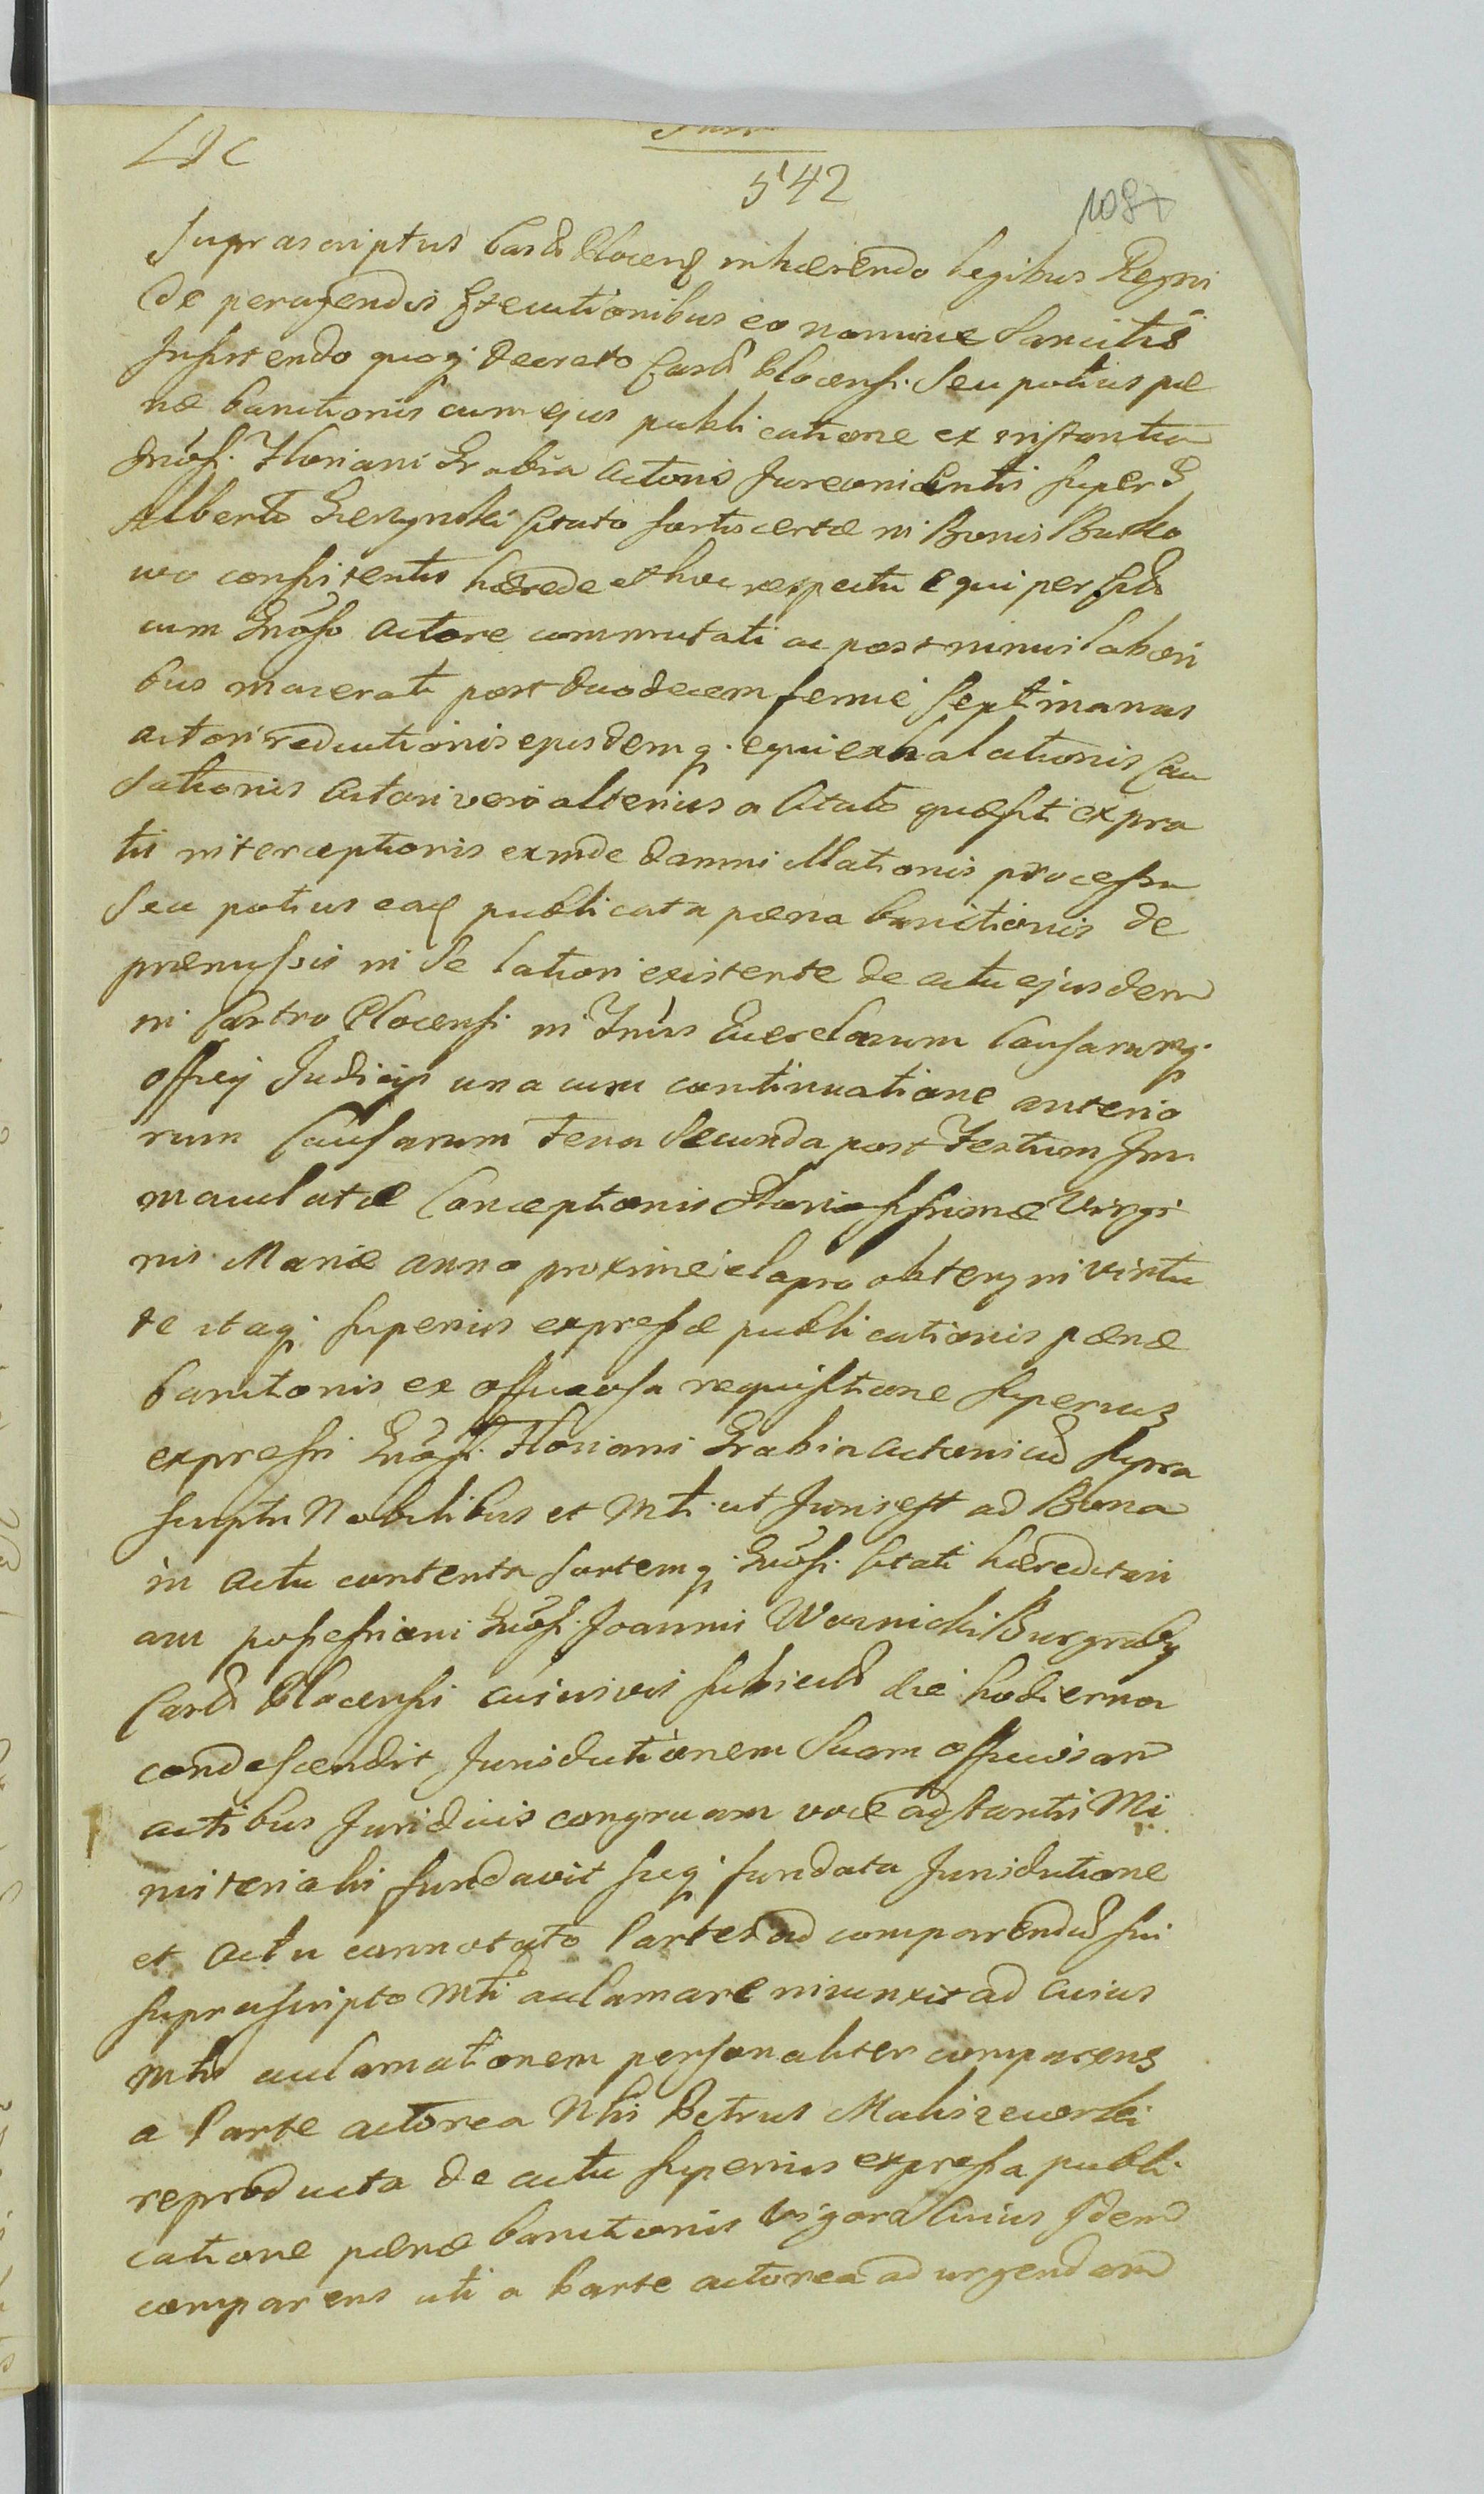 542
1087
Suprascriptus Cast͠ Plocen͠ inhaerendo legibus Regni
de peragendis Executionibus eo nomine Sancitis
Insistendo quoq; decreto Cast͠ Plocensi. Seu potius pae
nae banitionis cum ejus publicatione ex instantia
Gnosi. Floriani Grabia Actoris Jurevincentis super G
Alberto citato sortis certae in Bonis Butko
wo consistentis haerede et hoc respectu equi per
cum Gnoso Actore commutati ac post nimis labori
bus macerati post duodecem fermé Septimanas
actori reductionis ejusdemq; equi exhalationis Cau
sationis Actori veró alterius a Citato quaesiti ex pra
tis interceptionis exinde damni illationis processu
Seu potius eaq publicata paena banitionis de
praemissis in se latiori existente de actu ejusdem
in Castro Plocensi in Querelarum Causarumq;
officij Judicijs una cum continuatione anterio
rum Causarum Feria Secunda post Festum Im
maculatae Conceptionis Virgi
nis Mariae anno proximé elapso obtenz in virtu
te itaq; superius expressae publicationis paenae
banitonis ex officiosa requisitione superius
expressi Gnosi. Floriani Grabia Actoris cũ supra
scriptis Nobilibus et Mtli ut Juris est ad Bona
in Actu contenta sortemq; Gnosi. Citati haereditari
am possessioni Gnosi. Joannis Warnicki Burgrabij
Cast͠ Plocensi cujusvis die hodierna
condescendit Jurisdictionem Suam officiosam
actibus Juridicis congruam voce adstantis Mi
nisterialis fundavit sicq; fundata Jurisdictione
et Actu connotato Partes ad comparendũ sui
suprascripto Mtli aclamare iniunxit ad cuius
Mtlis aclamationem personaliter comparens
a Parte actorea Nblis Petrus Maliszewski
reproducta de actu superius expressa publi
catione paenae banitionis vigore cuius Idem
comparens uti a Parte actorea ad urgendam